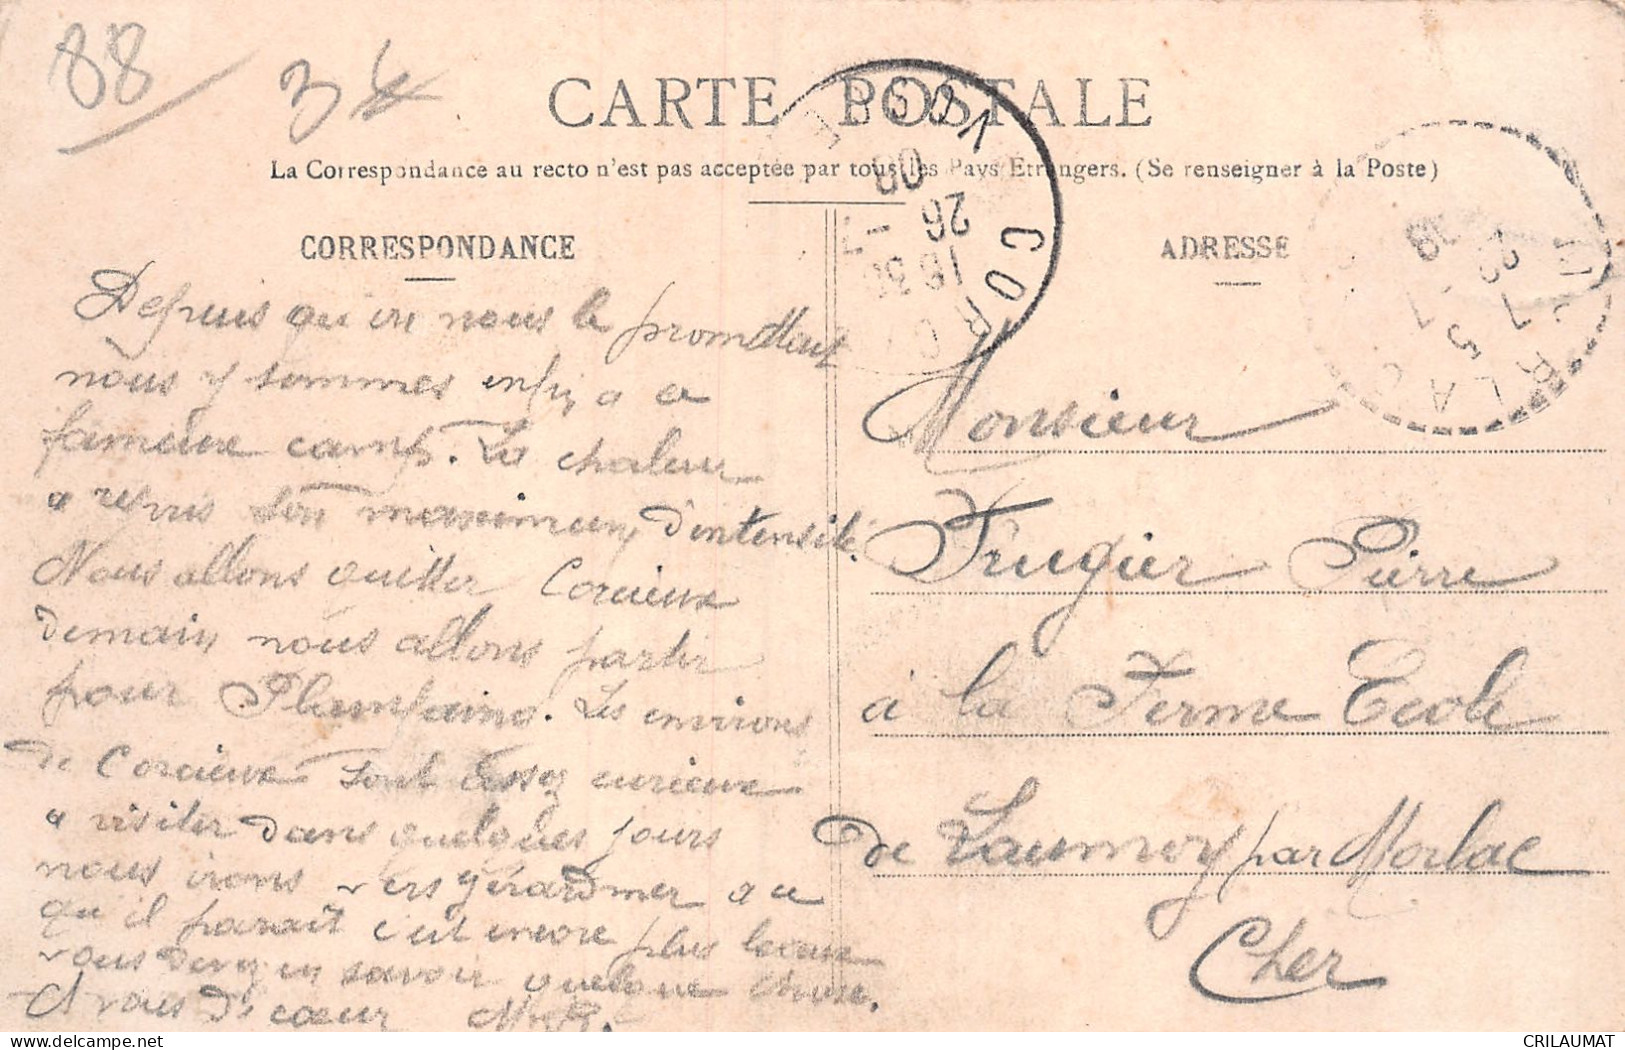 88
CARTE POSTALE
La Correspondance au recto n'est pas acceptée par tous les Pays Etrangers. (Se renseigner à la Poste)
CORRESPONDANCE
ADRESSE
Depuis qu'on nous le promettait
nous y sommes enfin a ce
fameux camp. La chaleur
a repris son maximum d'intensité.
Nous allons quitter Corcieux
demain, nous allons partir
pour Plainfaing. Les environs
de Corcieux sont assez curieux
a visiter dans quelques jours
nous irons vers Gérardmer a ce
qu'il parait c'est encore plus beau
vous devez en savoir quelque chose.
A vous de cœur
Monsieur
Frugier Pierre
à la Ferme Ecole
de Laumoy par Morlac
Cher
CORCIEUX
VOSGES
18 30
26 -7
09
MORLAC
CRILAUMAT